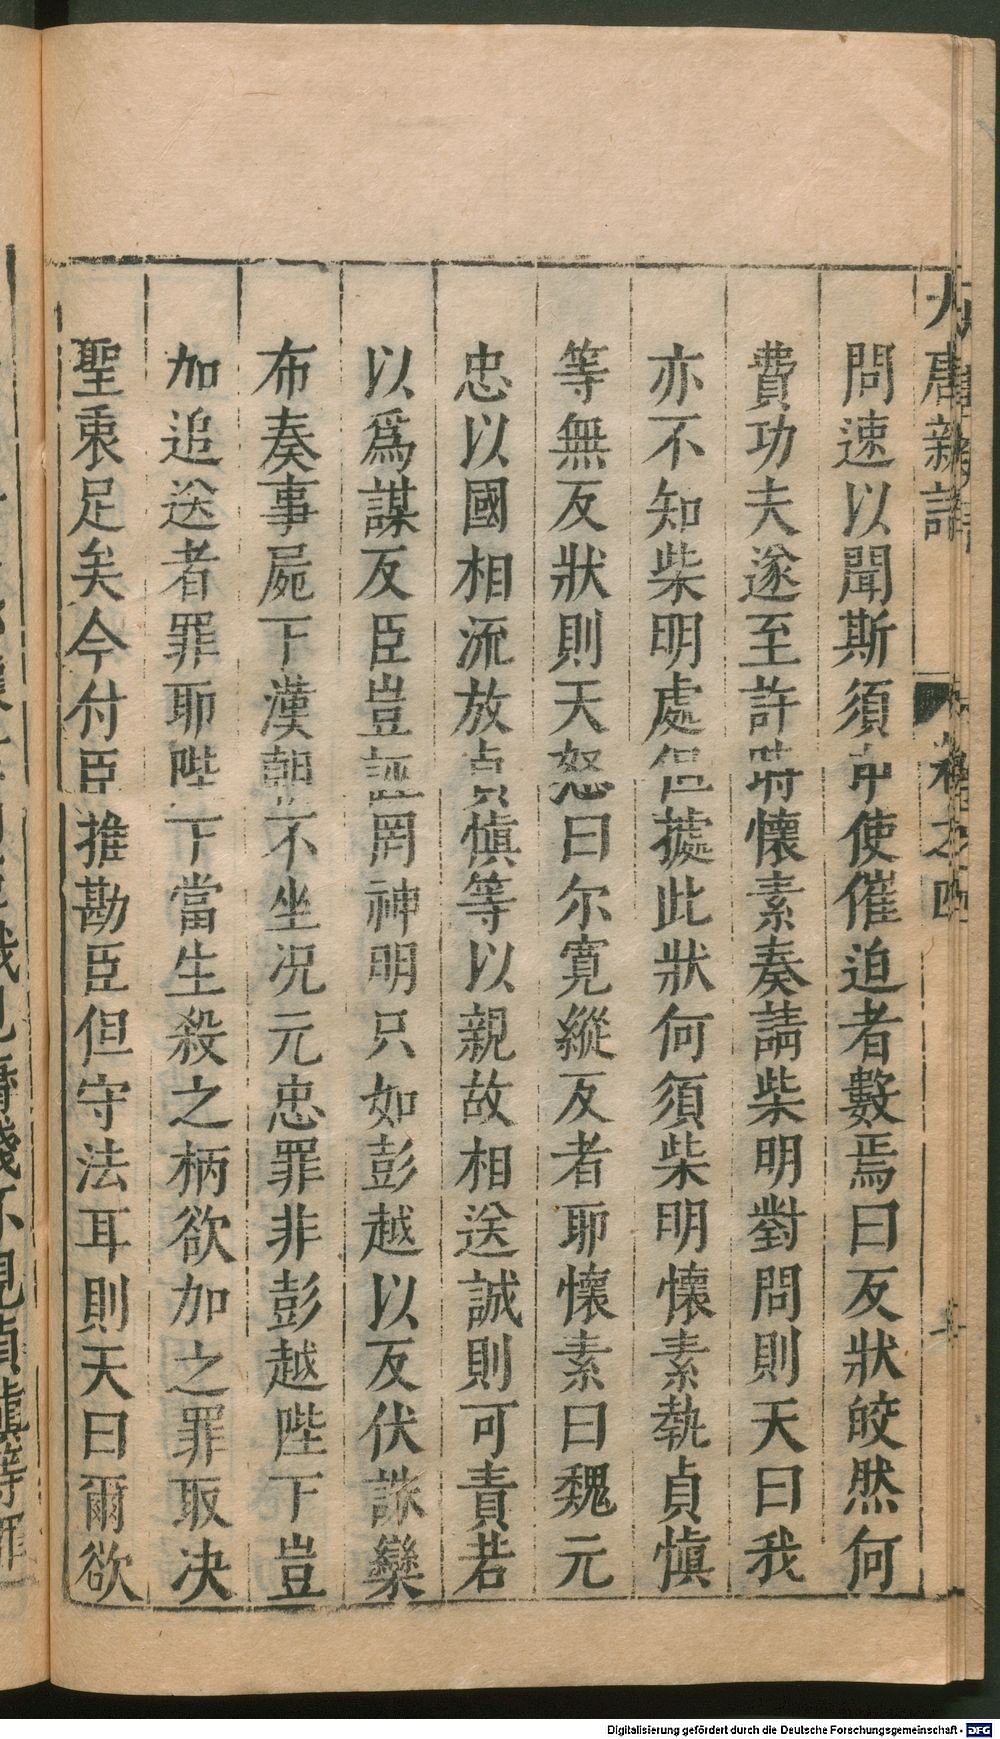 大唐新語 卷之四
問速以聞斯須中使催迫者數焉曰反狀皎然何
費功夫遂至許時懷素奏請柴明對問則天曰我
亦不知柴明處但據此狀何須柴明懷素執貞慎
等無反狀則天怒曰尔寬縱反者耶懷素曰魏元
忠以國相流放貞慎等以親故相送誠則可責若
以爲謀反臣豈誣罔神明只如彭越以反伏誅欒
布奏事屍下漢朝不坐况元忠罪非彭越陛下豈
加追送者罪耶陛下當生殺之柄欲加之罪取决
聖衷足矣今付臣推勘臣但守法耳則天曰爾欲
Digitalisierung gefördert durch die Deutsche Forschungsgemeinschaft - DFG